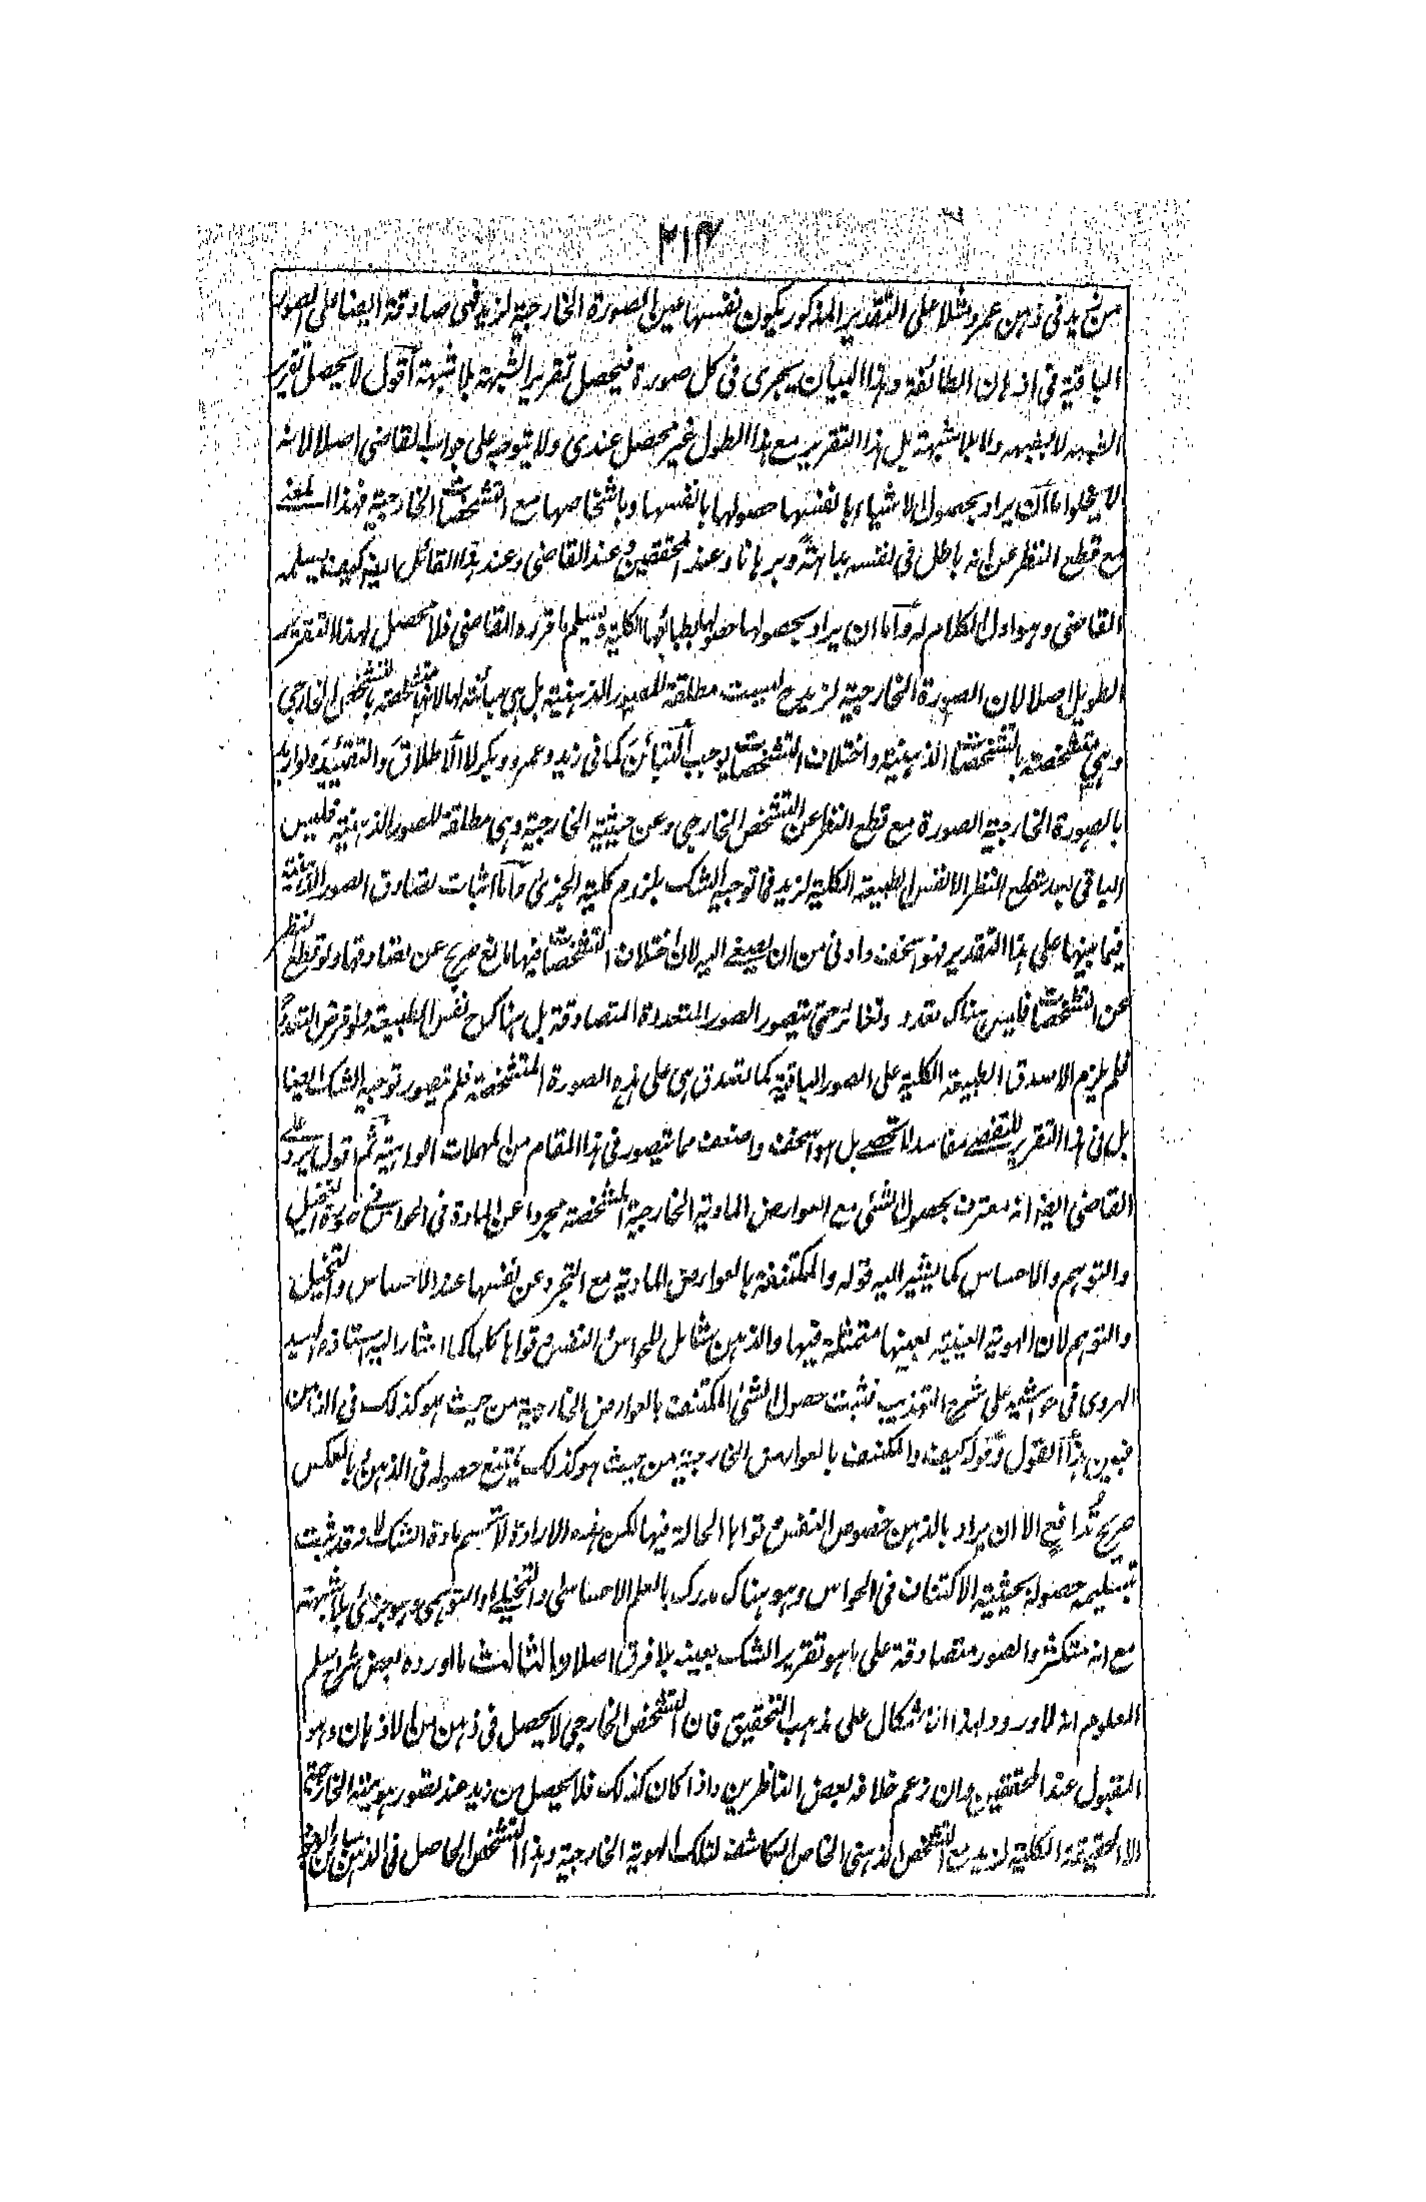 ٢١٤
من زيد في ذهن عمرو مثلا على التقدير المذكور يكون نفسها عين الصورة الخارجية لزيد فهي صادقة ايضا على الصور
الباقية في اذهان الطائفة وهذا البيان يجري في كل صورة فيحصل تقرير الشبهة بلا شبهة أقول لا يحصل تقرير
الشبهة لا بشبهة ولا بلا شبهة بل هذا التقرير مع هذا الطول غير محصل عندي ولا يتوجه على جواب القاضي اصلا لانه
لا يخلوا ما أن يراد بحصول الاشياء بانفسها حصولها بانفسها وباشخاصها مع التشخصات الخارجية فهذا المعنى
مع قطع النظر عن انه باطل في نفسه بداهة وبرهانا وعند المحققين وعند القاضي وعند هذا القائل ايضا كيف يسلمه
القاضي وهو اول الكلام له وأما ان يراد بحصولها حصولها بطبائعها الكلية فيسلم ما قرره القاضي فلا محصل لهذا التقرير
الطويل اصلا لان الصورة الخارجية لزيد ح ليست مطلقة للصور الذهنية بل هي مبائنة لها لانها متشخصة بالتشخص الخارجي
وهي متشخصة بالتشخصات الذهنية واختلاف التشخصات يوجب التبائن كما في زيد وعمرو وبكر لا الاطلاق والتقئيد ولو اريد
بالصورة الخارجية الصورة مع قطع النظر عن التشخص الخارجي وعن حيثية الخارجية وهي مطلقة للصور الذهنية فليس
الباقي بعد قطع النظر الا نفس الطبيعة الكلية لزيد فما توجيه الشك بلزوم كلية الجزئي وأما اثبات تصادق الصور الذهنية
فيما بينها على هذا التقدير فهو اسخف وادنى من ان يصغى اليه لان اختلاف التشخصات فيها مانع صريح عن تصادقها ولو قطع النظر
عن التشخصات فليس هناك تعدد وتغائر حتى يتصور الصور المتعددة المتصادقة بل هناك ح نفس الطبيعة ولو فرض التعدد
فلم يلزم الا صدق الطبيعة الكلية على الصور الباقية كما تصدق هي على هذه الصورة المتشخصة فلم يتصور توجيه الشك ايضا
بل في هذا التقرير للتفصي مفاسد لا تحصى بل هو اسخف واضعف مما يتصور في هذا المقام من المهملات الواهية ثم اقول يرد على
القاضي ايضا انه معترف بحصول الشئ مع العوارض المادية الخارجية المشخصة مجردا عن المادة في الحواس في صورة التخيل
والتوهم والاحساس كما يشير اليه قوله والمكتنفة بالعوارض المادية مع التجرد عن نفسها عند الاحساس والتخيل
والتوهم لان الهوية العينية بعينها متمثلة فيها والذهن شامل للحواس والنفس وقواها كلها كما اشار اليه استاذه السيد
الهروي في حواشيه على شرح التهذيب فثبت حصول الشئ المكتنف بالعوارض الخارجية من حيث هو كذلك في الذهن
فبين هذا القول وقوله كيف والمكتنف بالعوارض الخارجية من حيث هو كذلك يمتنع حصوله في الذهن وبالعكس
صريح تدافع الا ان يراد بالذهن خصوص النفس مع قواها الحالة فيها لكن هذه الارادة لا تحسم مادة الشك لانه قد ثبت
بتسليمه حصوله بحيثية الاكتناف في الحواس وهو هناك مدرك بالعلم الاحساسي والتخيلي او التوهمي وهو جزئي بلا شبهة
مع انه متكثر والصور متصادقة على ما هو تقرير الشك بعينه بلا فرق اصلا والثالث ما اورده بعض شراح سلم
العلوم انه لا ورود لهذا الاشكال على مذهب التحقيق فان التشخص الخارجي لا يحصل في ذهن من الاذهان وهو
المقبول عند المحققين وان زعم خلافه بعض الناظرين واذا كان كذلك فلا يحصل من زيد عند تصور هويته الخارجية
الا الحقيقة الكلية لزيد مع التشخص الذهني الخاص الكاشف لتلك الهوية الخارجية وهذا التشخص الحاصل في الذهن